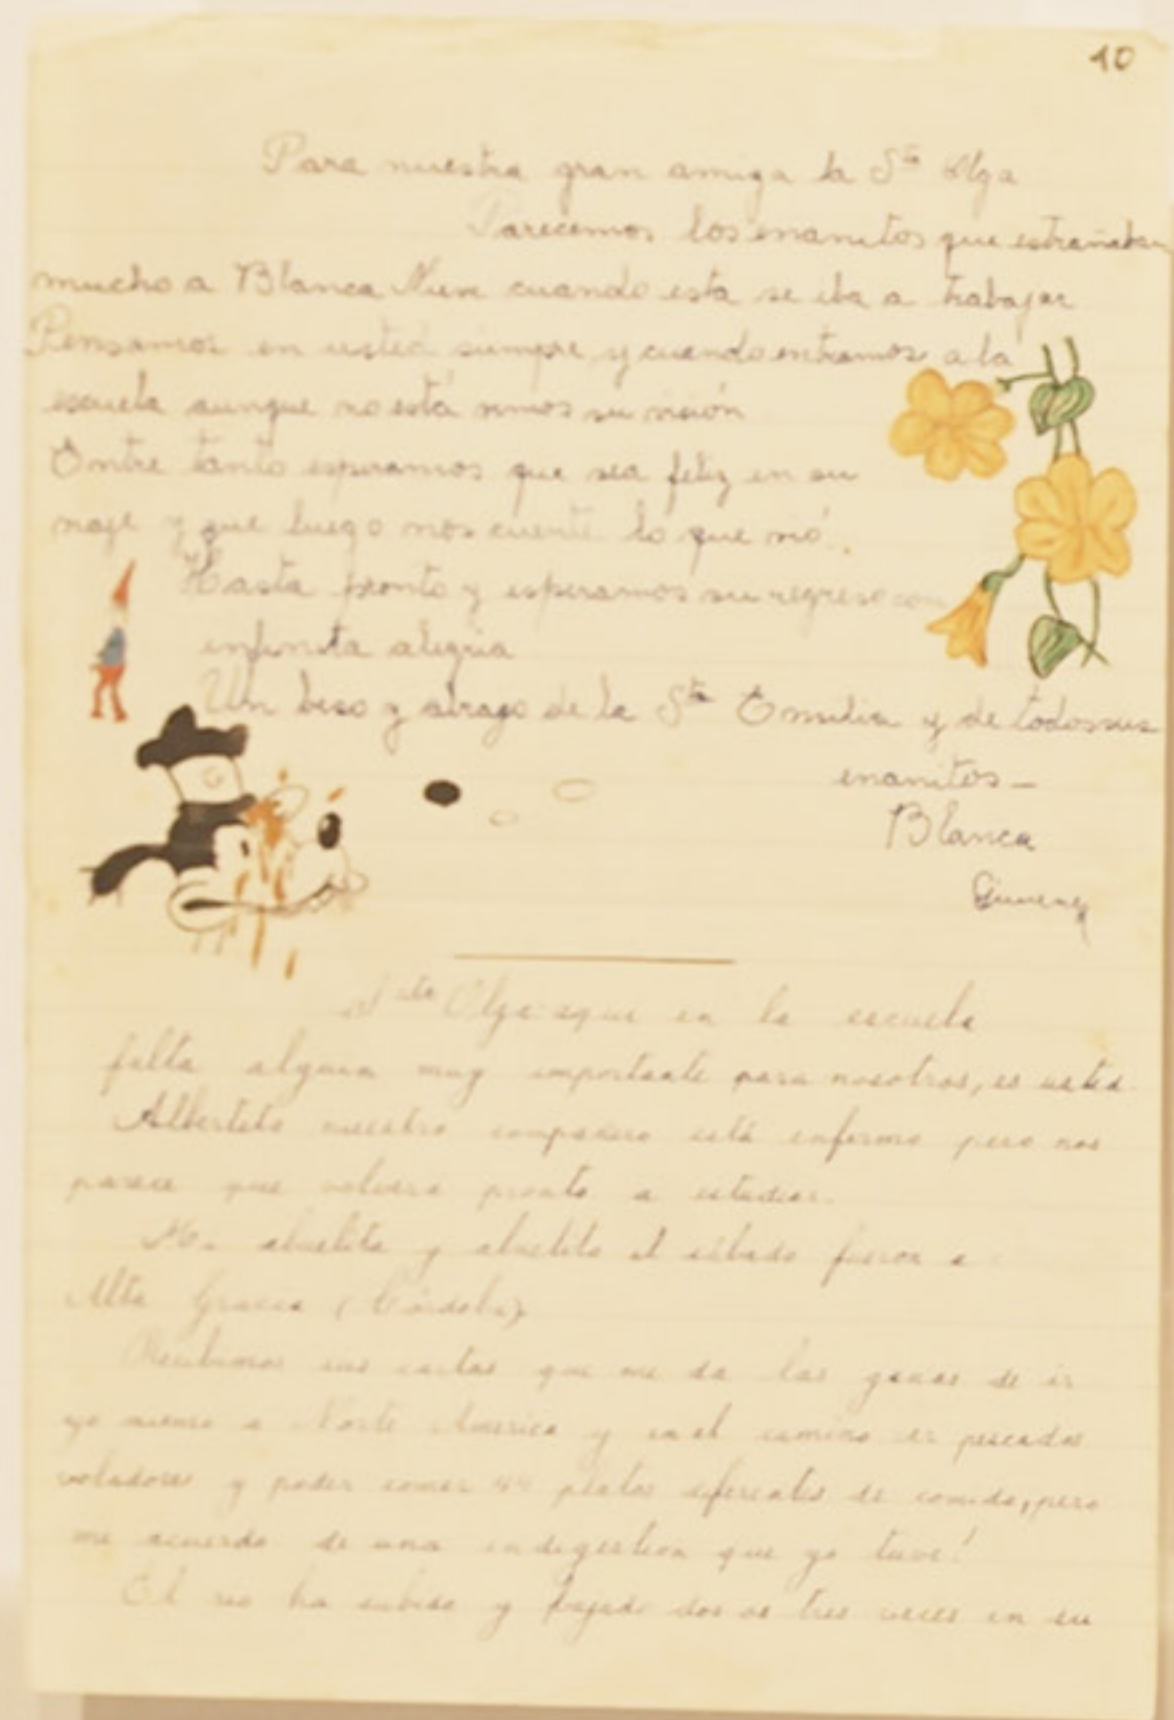 10
Para nuestra gran amiga la Sta Olga
Parecemos los enanitos que estrañaban
mucho a Blanca Nieve cuando esta se iba a trabajar
Pensamos en usted siempre y cuando entramos a la
escuela aunque no está vemos su visión
Entre tanto esperamos que sea feliz en su
viaje y que luego nos cuente lo que vió.
Hasta pronto y esperamos su regreso con
infinita alegria
Un beso y abrazo de la Sta Emilia y de todos sus
enanitos—
Blanca
Gimenez
Sta Olga: aqui en la escuela
falta alguien muy importante para nosotros, es usted.
Albertito nuestro compañero está enfermo pero nos
parece que volverá pronto a estudiar.
Mi abuelita y abuelito el sábado fueron a
Alta Gracia (Córdoba)
Recibimos sus cartas que me da las ganas de ir
yo a Norte America y en el camino pescados
voladores y poder comer 44 platos diferentes de comida, pero
me acuerdo de una indigestión que yo tuve!
El rio ha subido y bajado dos o tres veces en su